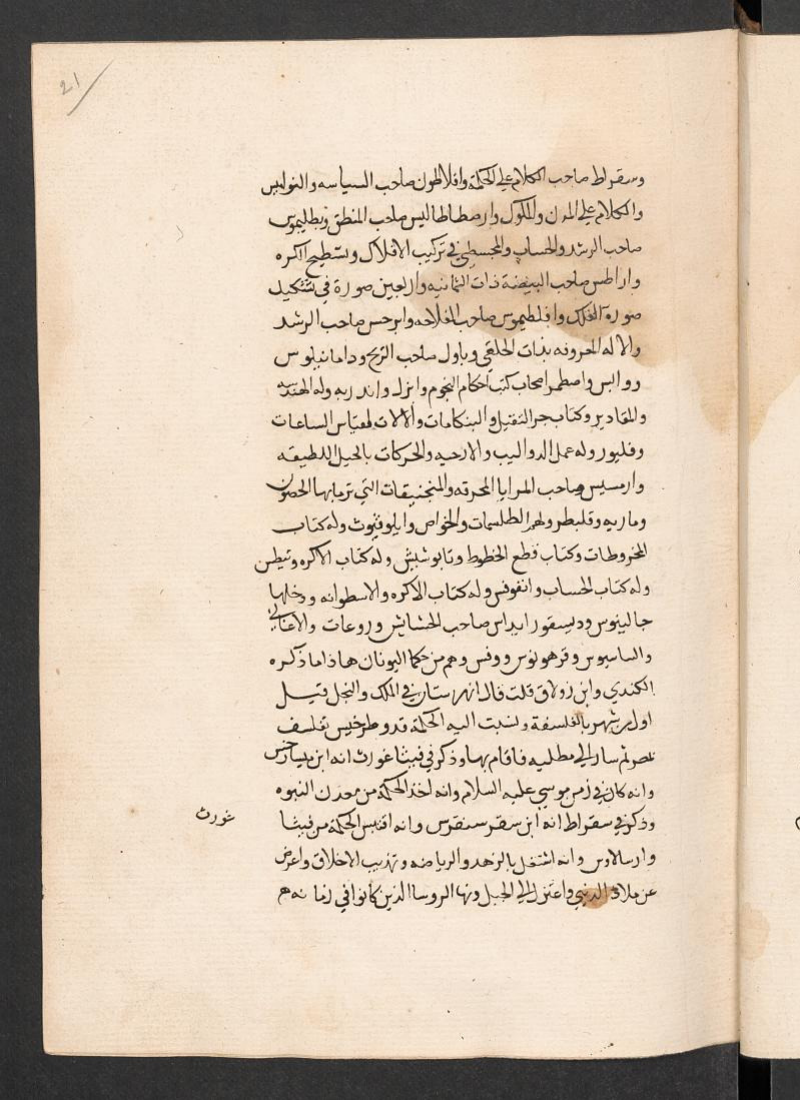 21
وسقراط صاحب الكلام على الحكمة وافلاطون صاحب السياسه والنواميس
والكلام على المدن والملوك وارسطاطاليس صاحب المنطق وبطليموس
صاحب الرشد والحساب والمجسطي في تركيب الافلاك وتسطيح الكره
واراطس صاحب البيضة ذات الثمانيه واربعين صورة في تشكيل
صورة الفلك وافلطيموس صاحب الفلاحه وابرحس صاحب الرشد
والاله المعروفه بذات الحلقى وباول صاحب الزيج ودامانيلوس
روابس واصطفر اصحاب كتب احكام النجوم وانزل واندريه وله الهندسه
والمقادير وكتاب جر الثقيل والبنكامات والالات لمقياس الساعات
وفليور وله عمل الدواليب والارحيه والحركات بالحيل اللطيفه
وارمسيس صاحب المرايا المحرقه والمنجنيقات التي ترما بها الحصون
وماريه وقلبطر ولهم الطلسمات والخواص وابلوفيوث وله كتاب
المخروطات وكتاب قطع الخطوط وتابوشيش وله كتاب الاكره وتيطن
وله كتاب الحساب وانفوفس وله كتاب الاكره والاسطوانه ودخلها
جالينوس وديسقورايداس صاحب الحشائش وروعات والاغاني
والساسيوس وقرهونوس ووفس وهم من حكما اليونان هاذا ما ذكره
الكندي وابن زولاق قلت قال الشهرستاني في الملل والنحل قيل
اول من شهر بالفلسفة ونسبت اليه الحكمة فدوطرخيس تفلسف
بمصر ثم سار الى مطليه فاقام بها وذكر في فيثاغورث انه ابن ميسارخس
وانه كان في زمن موسى عليه السلام وانه اخذ الحكمة من معدن النبوه
وذكر في سقراط انه ابن سقرسنقرس وانه اقتبس الحكمة من فيثا
غورث
وارسالاوس وانه اشتغل بالزهد والرياضه وتهذيب الاخلاق واعرض
عن ملاذ الدنيى واعتزل الى الجبل ونها الروسا الذين كانوا في زمانه هم